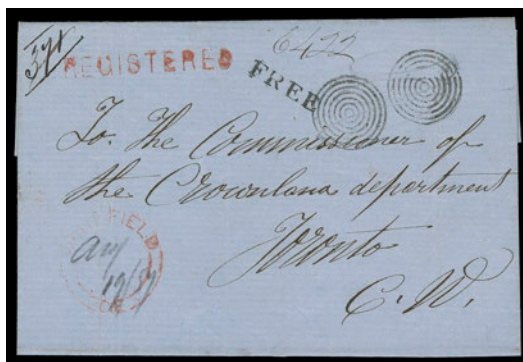 371
REGISTERED
6422
FREE
To. The Commissioner of
the Crownland department
Toronto
C. W.
Aug